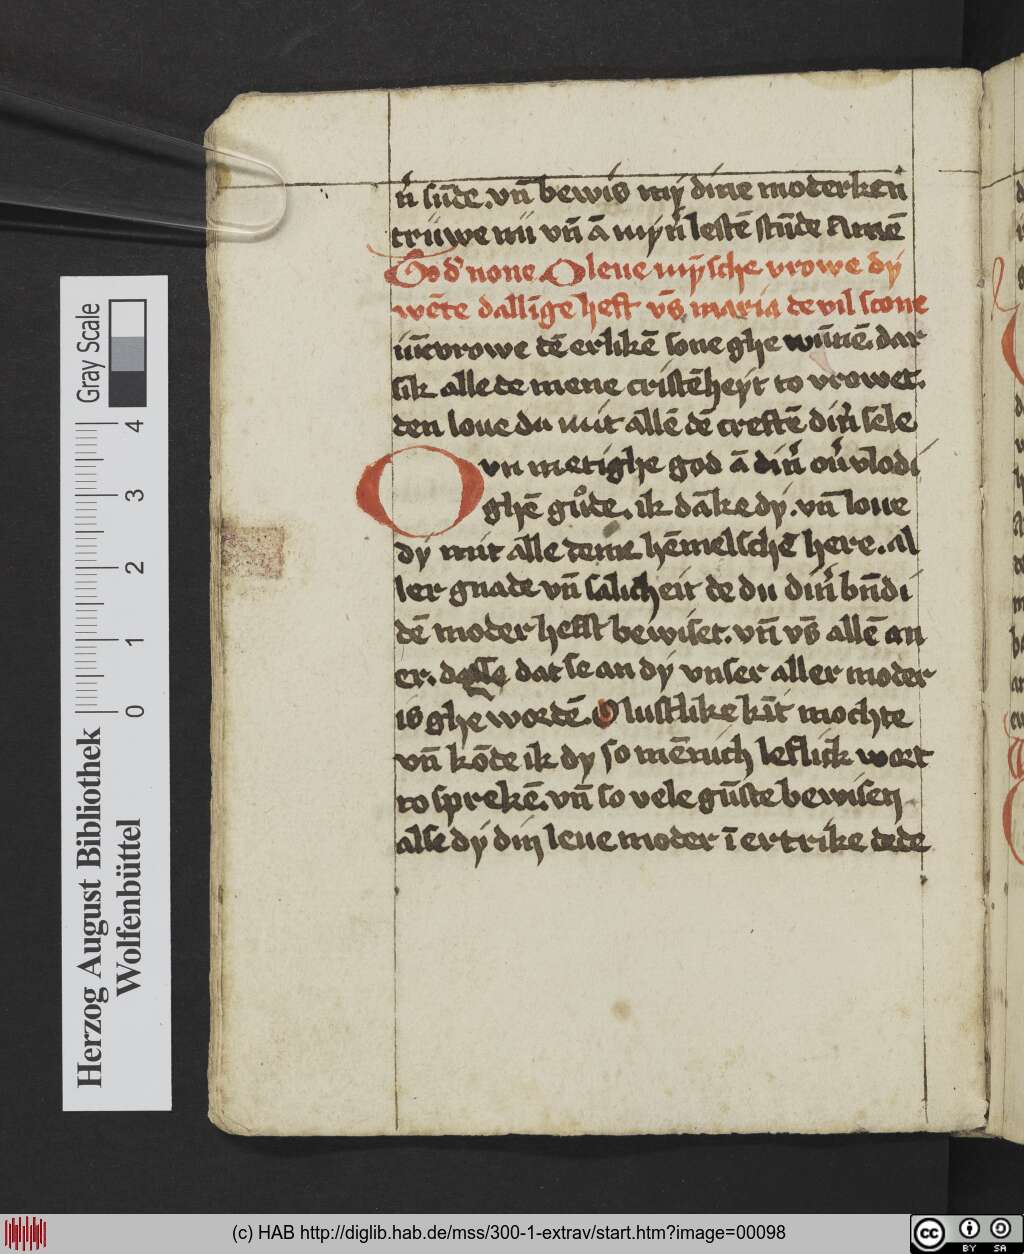 n̄ sūde. vn̄ bewis my dine moderken
truwe nu vn̄ ā myn̄ lestē stūde Amē
To d' none O leue mȳsche vrowe dy
wēte dallīge heft vn̄s maria de vil scone
iūcvrowe dē erlikē sone ghe wūnē. dar
sik alle de mene cristēheyt to vrowet.
den loue du mit allē dē creftē din̄ sele
O vn metighe god ā din̄ ouv'lodi
ghē gůde. ik dāke dy. vn̄ loue
dy mit alle deme hēmelschē here. al
ler gnade vn̄ salicheit de du din̄ bn̄di
dē moder hefst bewiset. vn̄ vn̄s allē an
er. desse dat se an dy vnser aller moder
is ghe wordē. O lustlike kīt mochte
vn̄ kōde ik dy so mēnich leflick wort
to sprekē. vn̄ so vele gūste bewisen
alse dy din leue moder ī ertrike dede
Gray Scale
0 1 2 3 4
Herzog August Bibliothek
Wolfenbüttel
(c) HAB http://diglib.hab.de/mss/300-1-extrav/start.htm?image=00098
cc BY SA